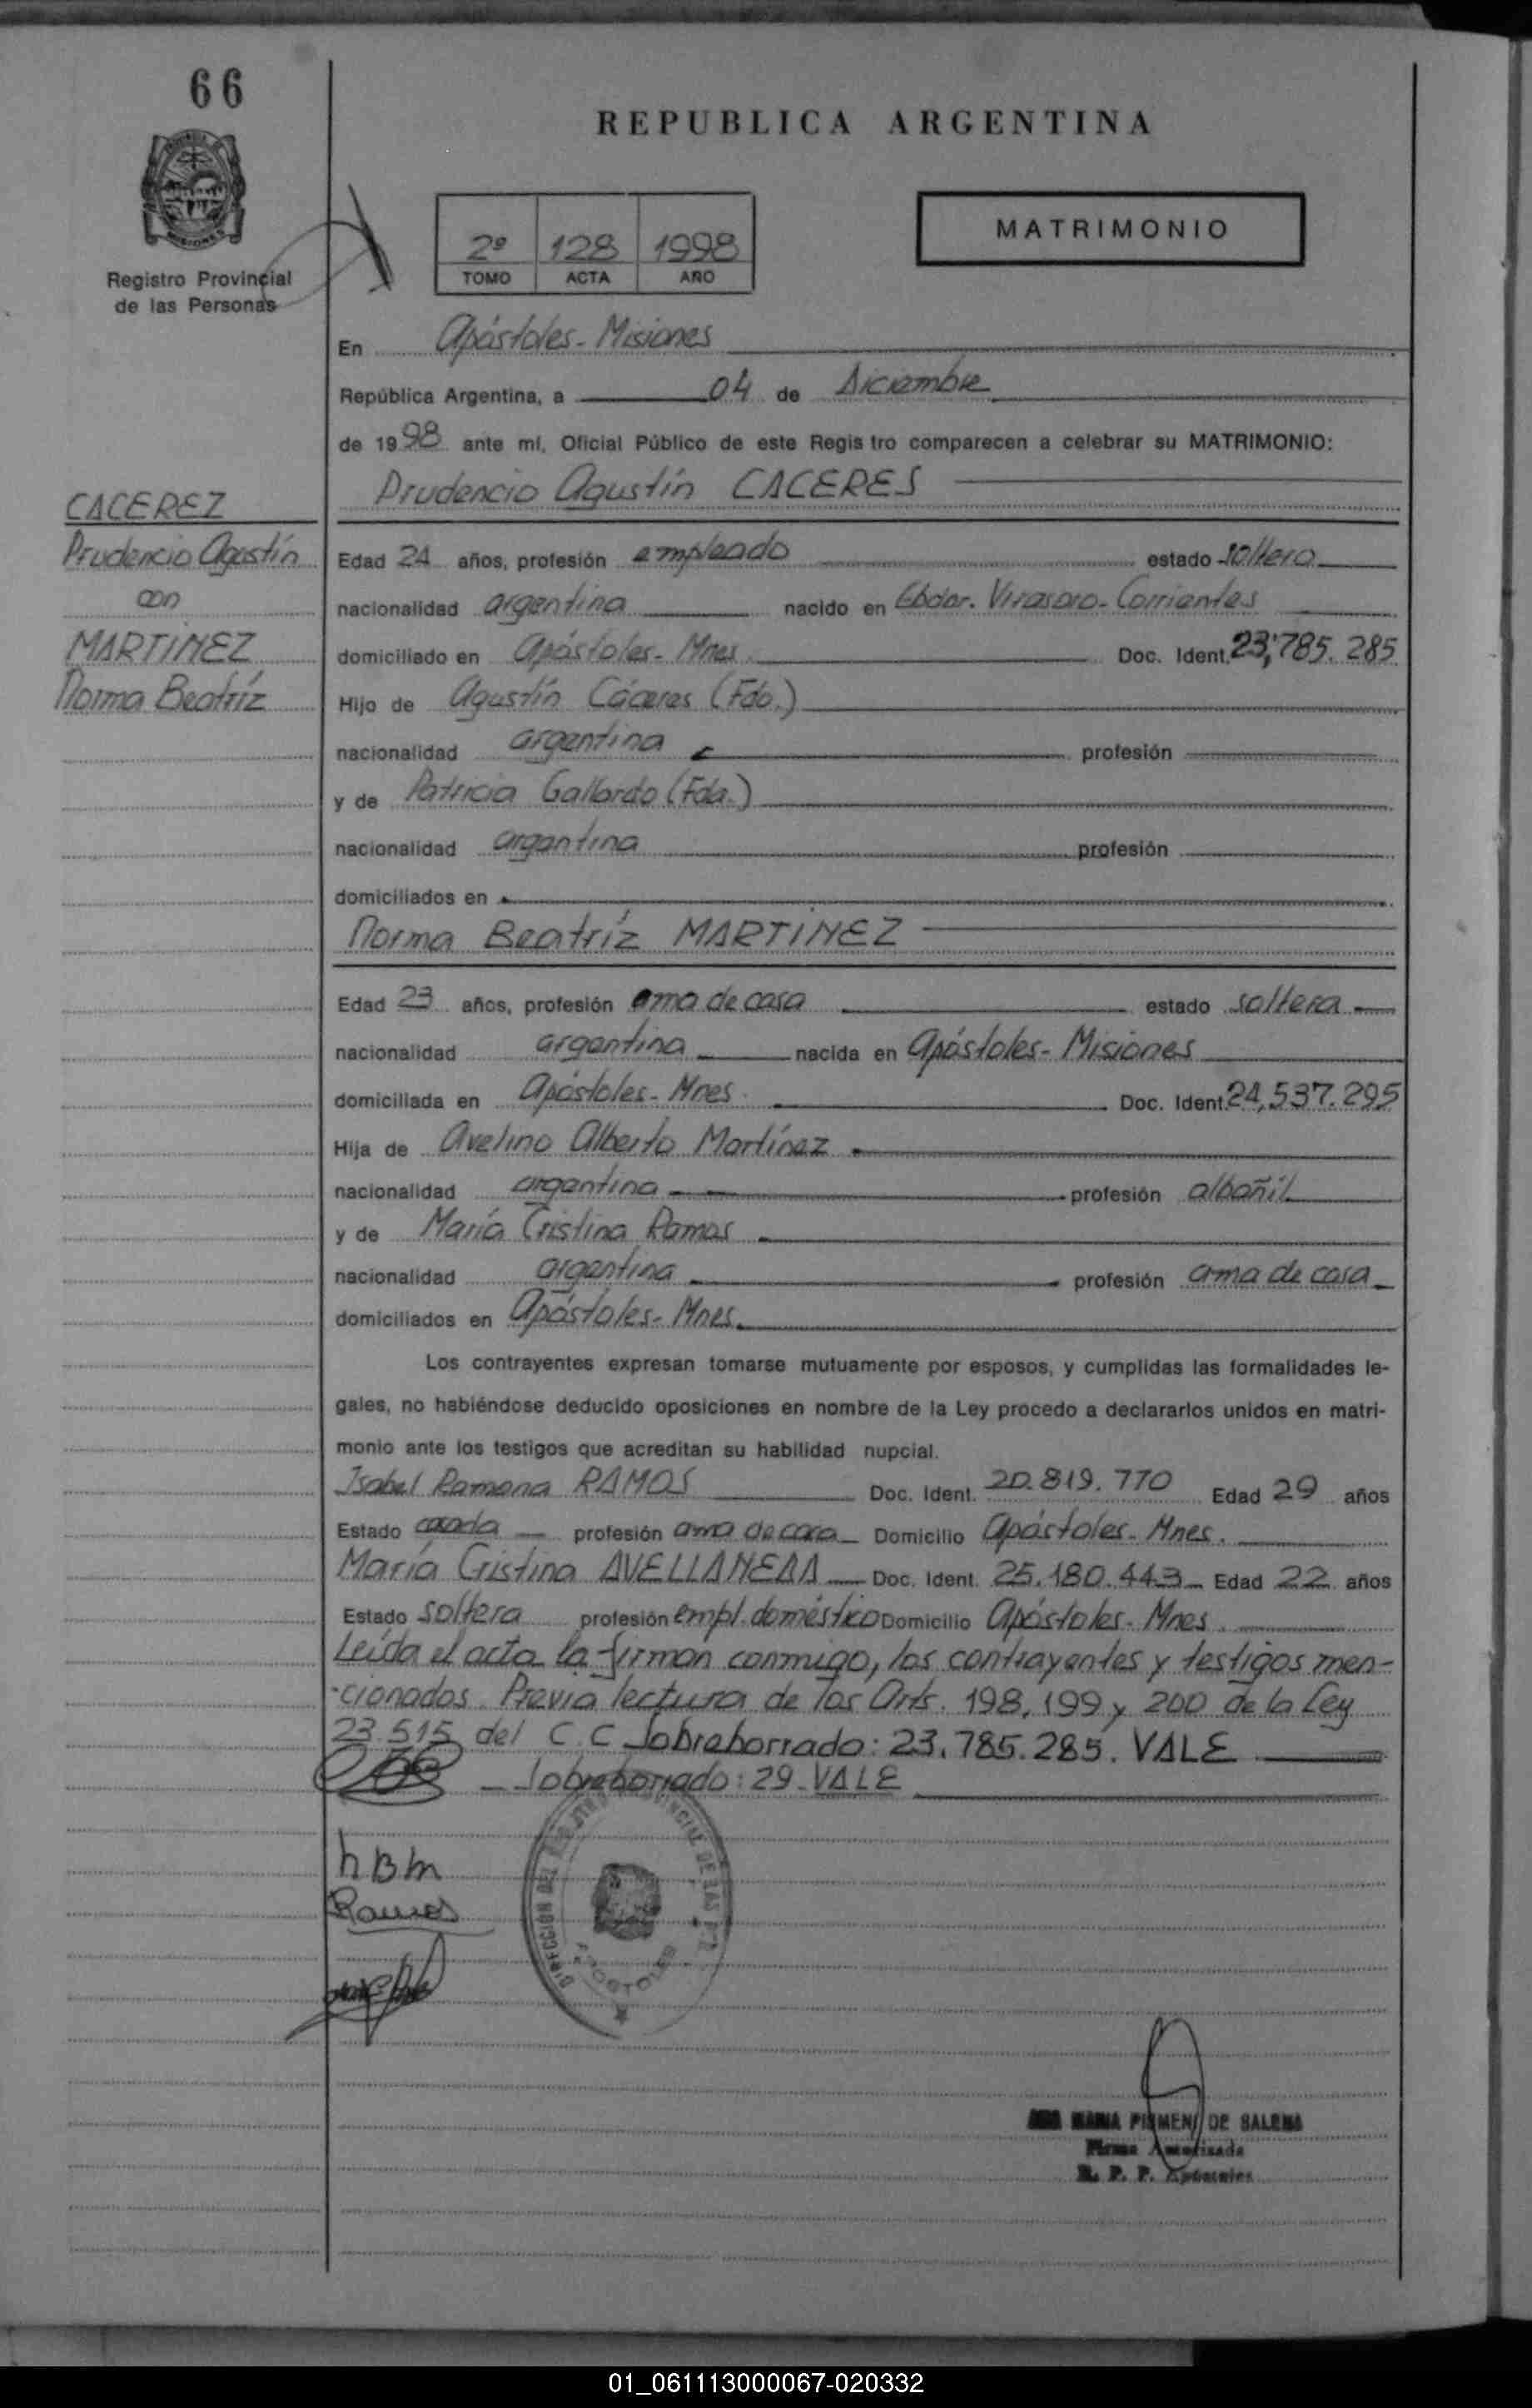 66
REPUBLICA ARGENTINA
MISIONES
Registro Provincial
de las Personas
2º 128 1998
TOMO ACTA AÑO
MATRIMONIO
En Apóstoles - Misiones
República Argentina, a 04 de Diciembre
de 1998 ante mí, Oficial Público de este Regis tro comparecen a celebrar su MATRIMONIO:
Prudencio Agustín CACERES
CACEREZ
Prudencio Agustín
con
MARTINEZ
Norma Beatríz
Edad 24 años, profesión empleado estado soltero
nacionalidad argentina nacido en Gbdor. Virasoro - Corrientes
domiciliado en Apóstoles - Mnes. Doc. Ident. 23,785.285
Hijo de Agustín Cáceres (Fdo.)
nacionalidad argentina profesión
y de Patricia Gallardo (Fda.)
nacionalidad argentina profesión
domiciliados en
Norma Beatríz MARTINEZ
Edad 23 años, profesión ama de casa estado soltera
nacionalidad argentina nacida en Apóstoles - Misiones
domiciliada en Apóstoles - Mnes. Doc. Ident. 24,537.295
Hija de Avelino Alberto Martínez
nacionalidad argentina profesión albañil
y de María Cristina Ramos
nacionalidad argentina profesión ama de casa
domiciliados en Apóstoles - Mnes.
Los contrayentes expresan tomarse mutuamente por esposos, y cumplidas las formalidades le-
gales, no habiéndose deducido oposiciones en nombre de la Ley procedo a declararlos unidos en matri-
monio ante los testigos que acreditan su habilidad nupcial.
Isabel Ramona RAMOS Doc. Ident. 20.819.770 Edad 29 años
Estado casada profesión ama de casa Domicilio Apóstoles - Mnes.
María Cristina AVELLANEDA Doc. Ident. 25.180.443 Edad 22 años
Estado soltera profesión empl. doméstico Domicilio Apóstoles - Mnes.
Leída el acta la firman conmigo, los contrayentes y testigos men-
cionados. Previa lectura de los Arts. 198, 199 y 200 de la Ley
23.515 del C.C Sobreborrado: 23.785.285. VALE
Sobreborrado: 29 - VALE
NBM
Ramos
DIRECCIÓN DEL PROVINCIAL DE LAS
APOSTOLES
MARIA DE SALENA
Firma Autorizada
R. P. P. Apóstoles
01_061113000067-020332